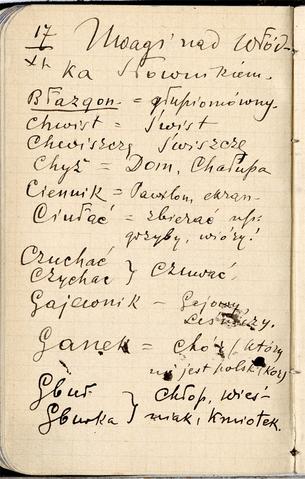 17
XI.
Uwagi nad Włód-
ka Słownikiem.
Błazgoń = głupiomówny.
Chwist = świst
Chwiszczę świszczę
Chyż = Dom, Chałupa
Ciennik = Pawilon, ekran.
Ciułać = zbierać np.
grzyby, wióry!
Czuchać
Czychać } Czuwać.
Gajewnik – Gajowy
Leśniczy.
Ganek = (który
nie jest polski
Gbuł } Chłop, wieś-
Gburka niak, Kmiotek.